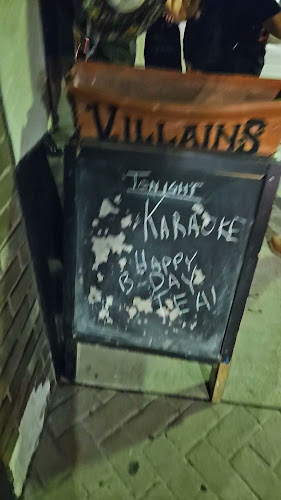 VILLAINS
TONIGHT
KARAOKE
HAPPY
B-DAY
TEA!